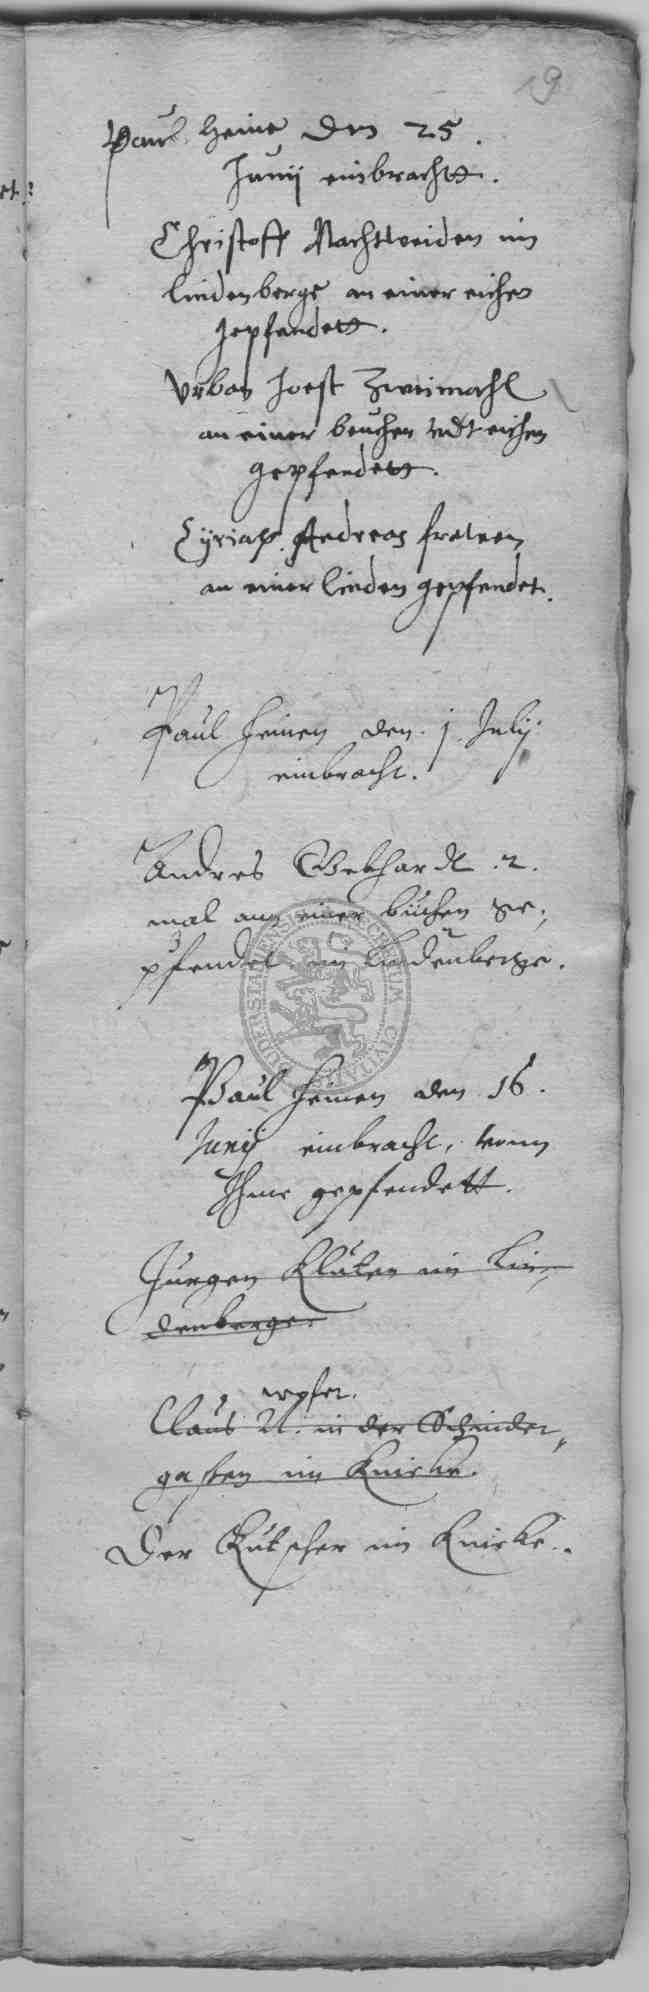 19
Paul Heine den 25.
Junij einbrachtt.
Christoff Nachtweiden im
lindenberge an einer eichen
gepfandett.
Urban Joest Zweimahl
an einer beuchen undt eichen
gepfendett.
Cyriax Andreas
an einer linden gepfendet.
Paul Heinen den 1. Julij
einbracht.
Andres Gebhardt .2.
mal ann einer büchen ge„
pfendet im Lindenberge.
Paul Heinen den 16.
Junij einbracht, vonn
Ihme gepfendett.
Jurgen Kluten im Lin„
denberge.
Claus N. in der Schinder„
gassen im Knicke.
Der Kutscher im Knicke.